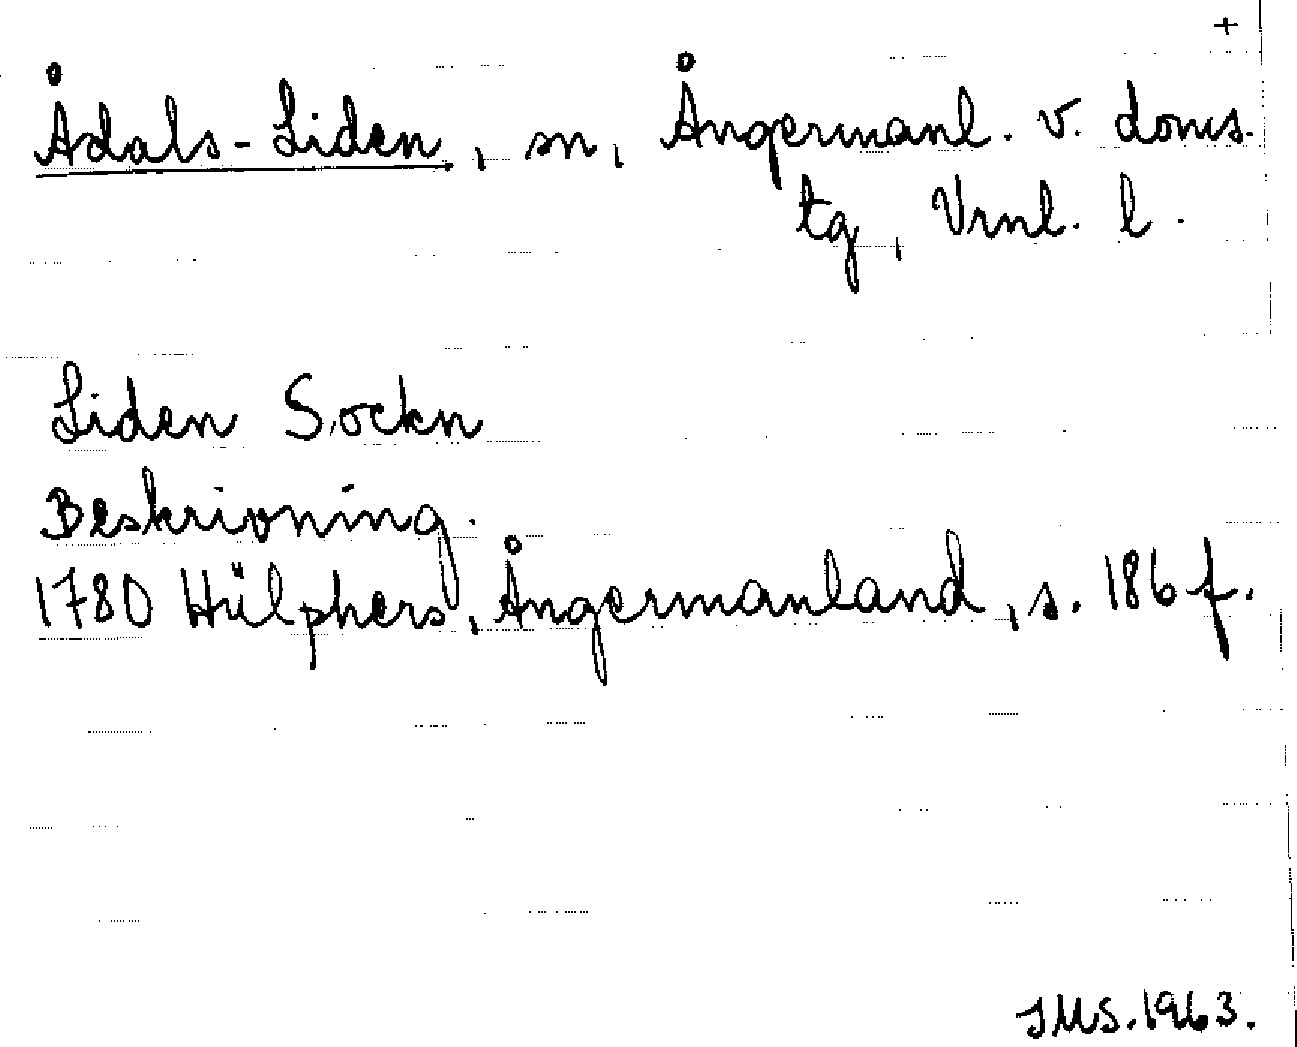 +
Ådals-Liden, sn, Ångermanl. v. doms.
tg, Vrnl. l.
Liden Sockn
Beskrivning.
1780 Hülphers, Ångermanland, s. 186 f.
JMS. 1963.